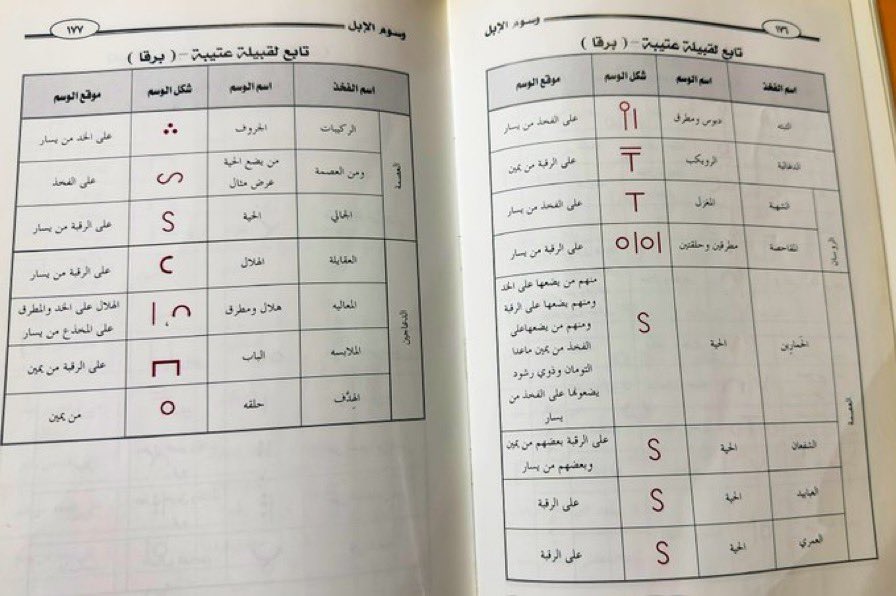 وسوم الإبل
١٧٦
تابع لقبيلة عتيبة - ( برقا )
اسم الفخذ اسم الوسم شكل الوسم موقع الوسم
دبوس ومطرق على الفخذ من يسار
الدغالبة الرويكب على الرقبة من يمين
الروسان
المغزل على الفخذ من يسار
مطرقين وحلقتين على الرقبة من يسار
العصمة
الحمارين الحية
منهم من يضعها على الخد
ومنهم يضعها على الرقبة
ومنهم من يضعها على
الفخذ من يمين ماعدا
التومان وذوي رشود
يضعونها على الفخذ من
يسار
الشفعان الحية
على الرقبة بعضهم من يمين
وبعضهم من يسار
العبابيد الحية على الرقبة
العمري الحية على الرقبة
وسوم الإبل
١٧٧
تابع لقبيلة عتيبة - ( برقا )
اسم الفخذ اسم الوسم شكل الوسم موقع الوسم
العصمة
الركيبات الجروف على الخد من يسار
ومن العصمة
من يضع الحية
عرض مثال
على الفخذ
الجالي الحية على الرقبة من يسار
الدعاجين
العقايلة الهلال على الرقبة من يسار
المعاليه هلال ومطرق
الهلال على الخد والمطرق
على المخذع من يسار
الملابسه الباب على الرقبة من يمين
الهدَّف حلقه من يمين